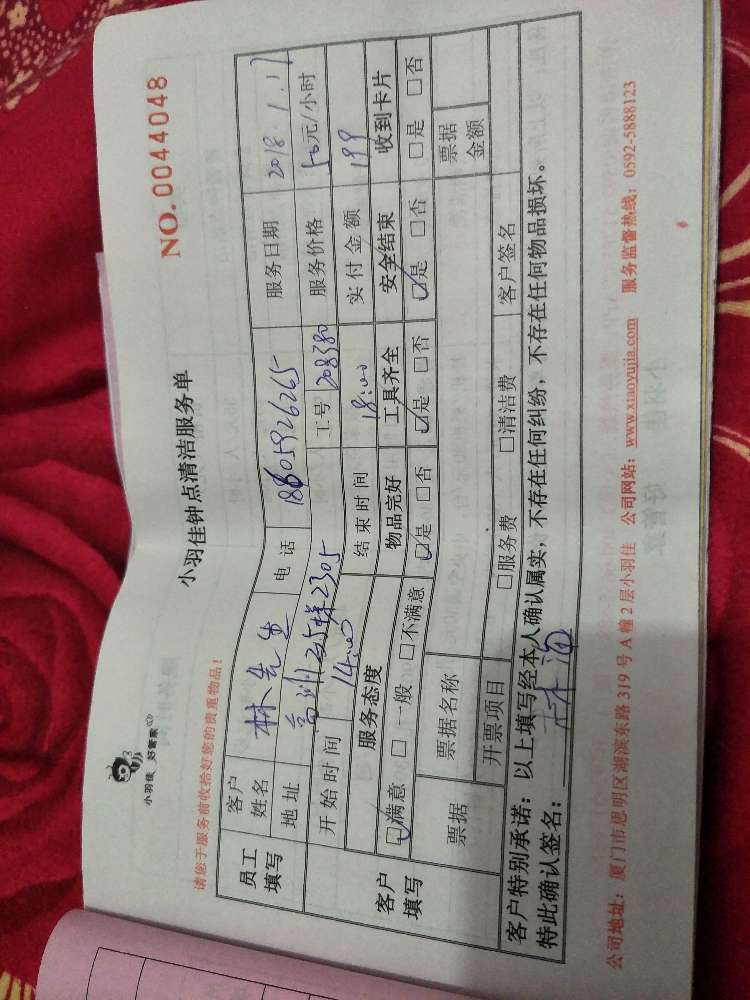 小羽佳 好管家
小羽佳钟点清洁服务单
NO. 0044048
请您于服务前收拾好您的贵重物品！
员工填写 客户姓名 林先生 电话 18605926265 服务日期 2018.1.17
地址 2305 工号 208380 服务价格 50元/小时
客户填写 开始时间 14:00 结束时间 18:00 实付金额 199
服务态度 物品完好 工具齐全 安全结束 收到卡片
☑满意 □一般 □不满意 ☑是 □否 ☑是 □否 ☑是 □否 □是 □否
票据 票据名称 票据金额
开票项目 □服务费 □清洁费 客户签名
客户特别承诺：以上填写经本人确认属实，不存在任何纠纷，不存在任何物品损坏。
特此确认签名：
公司地址：厦门市思明区湖滨东路 319 号 A 幢 2 层小羽佳 公司网站：www.xiaoyujia.com 服务监督热线：0592-5888123